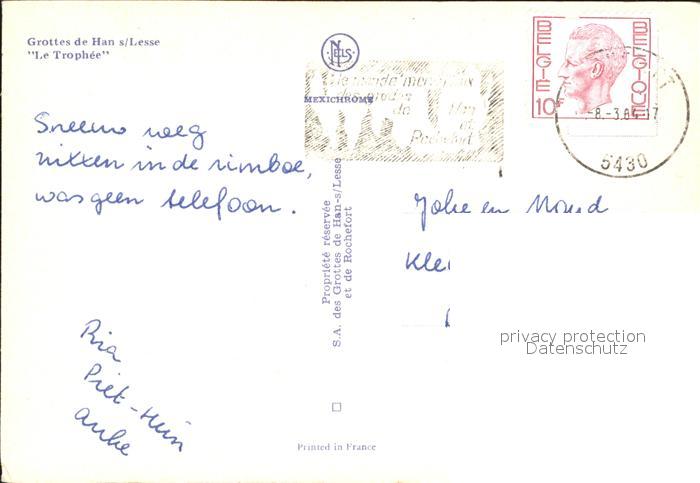 Grottes de Han s/Lesse
"Le Trophée"
NELS
MEXICHROME
Le monde merveilleux
des grottes
de Han
et
Rochefort
BELGIE BELGIQUE
10F
-8.-3.8 -17
5430
Sneeuw weg
nixxen in de rimboe,
was geen telefoon.
Ria
Piet-Hein
Anke
Propriété réservée
S.A. des Grottes de Han-s/Lesse
et de Rochefort
Joke en
Klei
privacy protection
Datenschutz
Printed in France